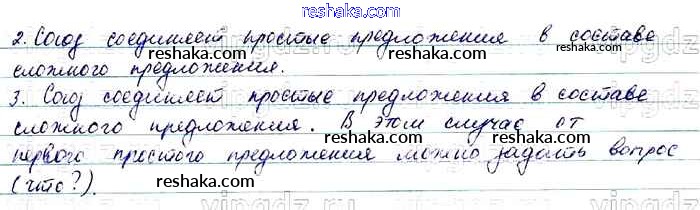 reshaka.com
2. Союз соединяет простые предложения в составе
reshaka.com
reshaka.com
сложного предложения.
reshaka.com
3. Союз соединяет простые предложения в составе
reshaka.com
reshaka.com
сложного предложения. В этом случае от
первого простого предложения можно задать вопрос
reshaka.com
reshaka.com
(что?).